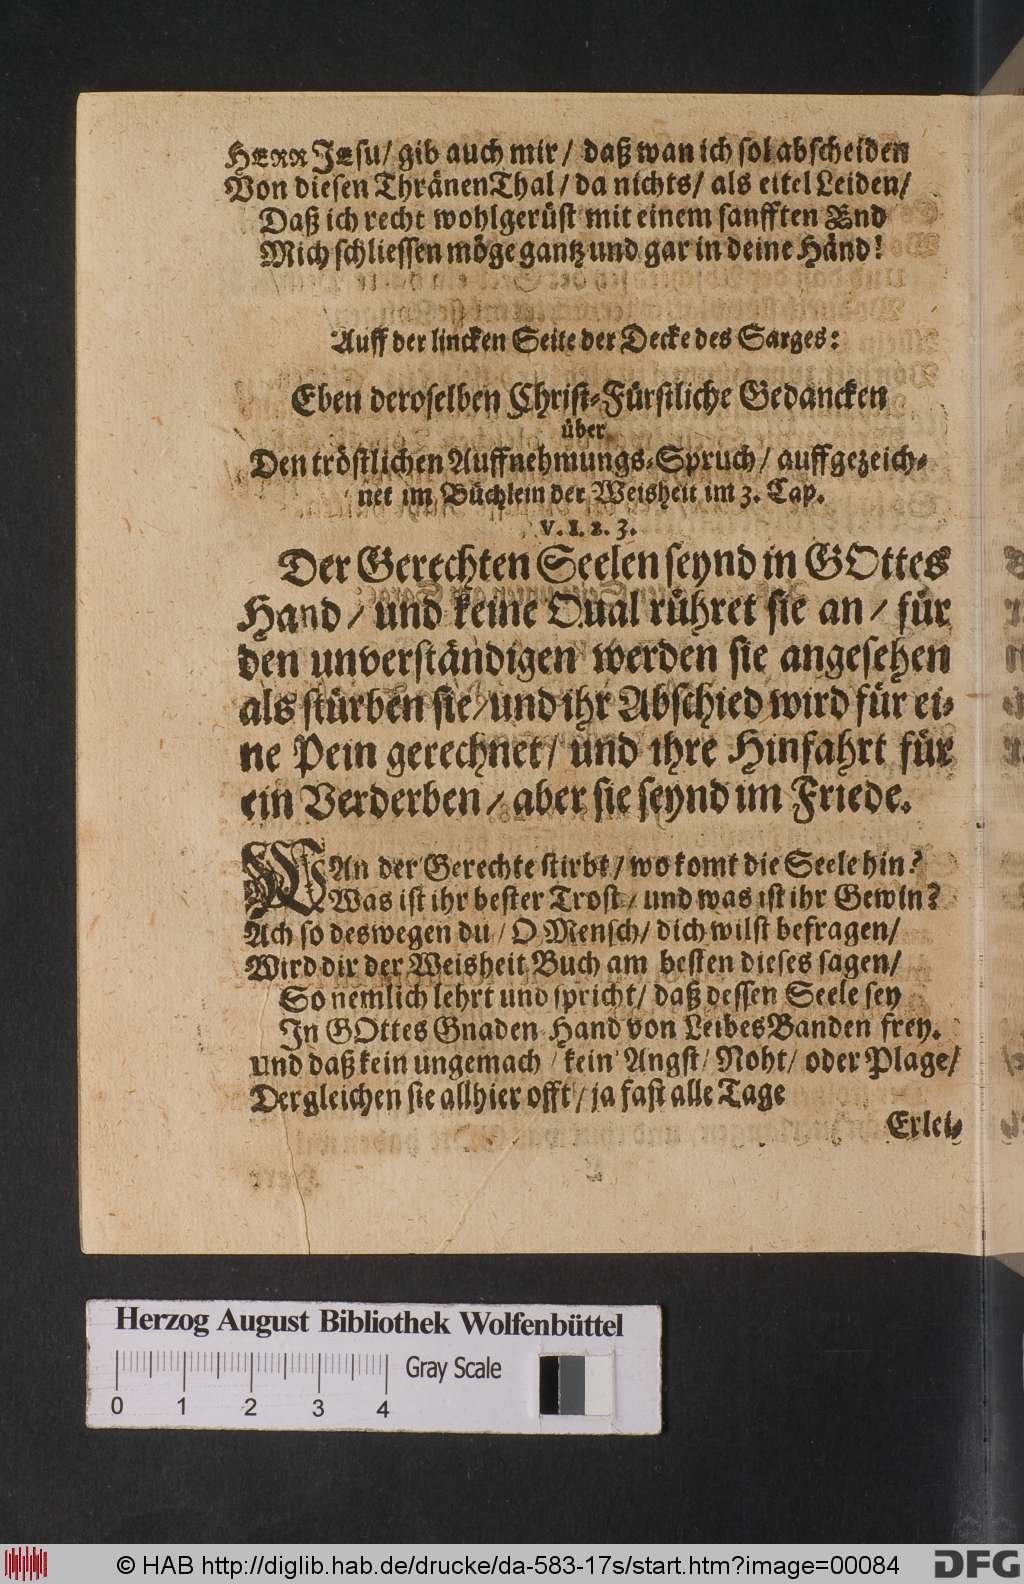 HERR JEsu/ gib auch mir / daß wan ich sol abscheiden
Von diesen ThränenThal / da nichts/ als eitel Leiden/
Daß ich recht wohlgerüst mit einem sanfften End
Mich schliessen möge gantz und gar in deine Händ!
Auff der lincken Seite der Decke des Sarges:
Eben deroselben Christ-Fürstliche Gedancken
über
Den tröstlichen Auffnehmungs-Spruch/ auffgezeich-
net im Büchlein der Weisheit im 3. Cap.
V. 1. 2. 3.
Der Gerechten Seelen seynd in GOttes
Hand / und keine Qual rühret sie an / für
den unverständigen werden sie angesehen
als stürben sie/ und ihr Abschied wird für ei-
ne Pein gerechnet/ und ihre Hinfahrt für
ein Verderben / aber sie seynd im Friede.
WAn der Gerechte stirbt / wo komt die Seele hin?
Was ist ihr bester Trost / und was ist ihr Gewin?
Ach so deswegen du / O Mensch/ dich wilst befragen/
Wird dir der Weisheit Buch am besten dieses sagen/
So nemlich lehrt und spricht/ daß dessen Seele sey
In GOttes Gnaden Hand von LeibesBanden frey.
Und daß kein ungemach / kein Angst/ Noht/ oder Plage/
Dergleichen sie allhier offt / ja fast alle Tage
Erlei-
Herzog August Bibliothek Wolfenbüttel
Gray Scale
0 1 2 3 4
© HAB http://diglib.hab.de/drucke/da-583-17s/start.htm?image=00084
DFG